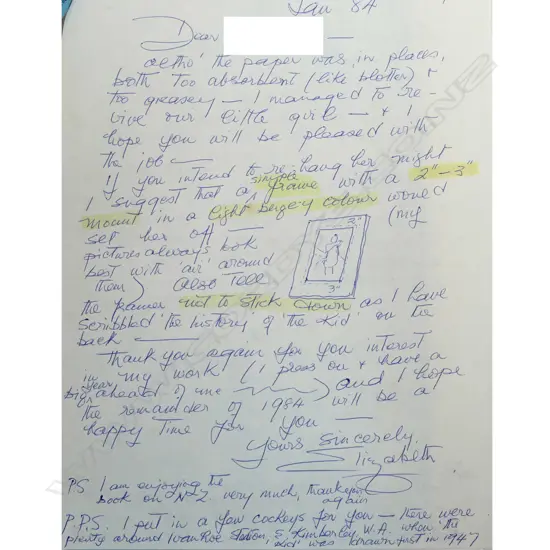 Jan 84
Dear
altho' the paper was, in places,
both too absorbent (like blotter) +
too greasey — I managed to re-
vive our little girl — + I
hope you will be pleased with
the job —
If you intend to re-hang her might
I suggest that a simple frame with a 2"-3"
mount in a light beigey colour would
set her off — (my
pictures always look
best with 'air' around
them) Also Tell
2"
3"
the framer not to stick down as I have
scribbled the history of 'the Kid' on the
back —
Thank you again for you interest
in my work (I press on + have a
big year ahead of me) and I hope
the remainder of 1984 will be a
happy Time for you —
Yours Sincerely
Elizabeth
PS I am enjoying the
book on N.Z. very much, thankyou
again
P.P.S. I put in a few cockeys for you — there were
plenty around Ivanhoe Station, E. Kimberley W.A. when the
'Kid' was drawn first in 1947